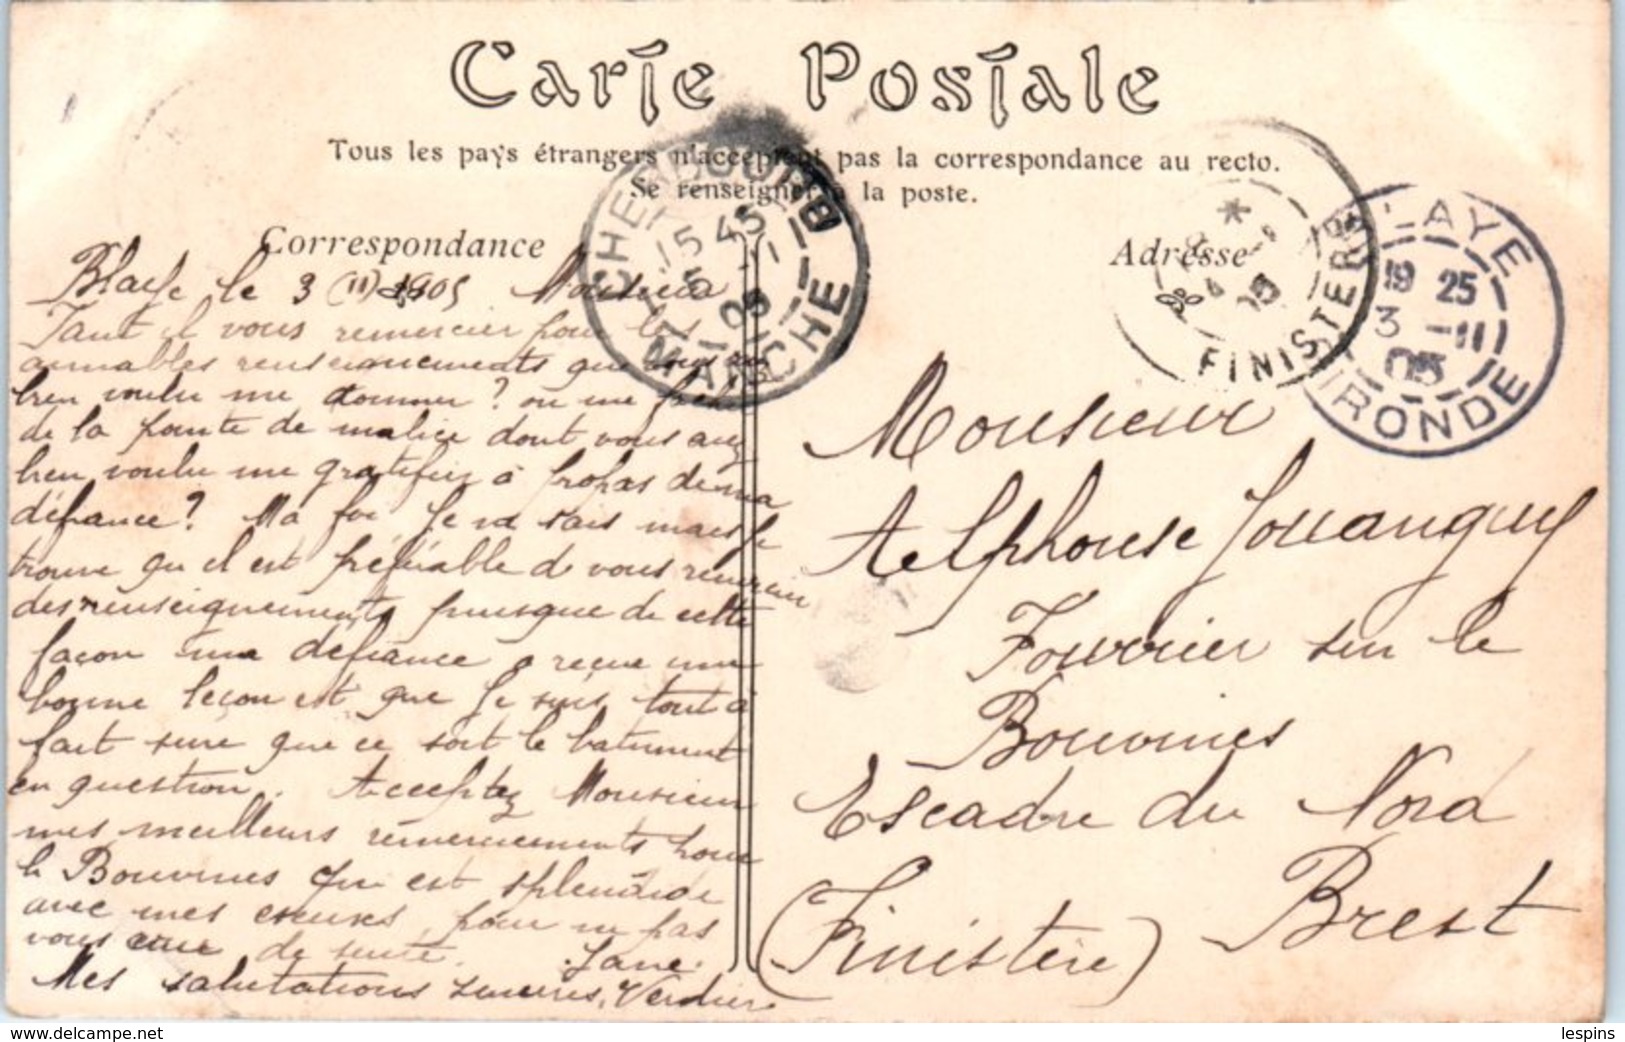 Carte Postale
Tous les pays étrangers n'acceptent pas la correspondance au recto.
Se renseigner à la poste.
Correspondance
Adresse
CHERBOURG
15 45
5 -11
05
MANCHE
FINISTERE
BLAYE
19 25
3 -11
05
GIRONDE
Blaye le 3 (11) 1905 Monsieur
Faut il vous remercier pour les
aimables renseignements que vous
bien voulu me donner? ou me
de la pointe de malice dont vous avez
bien voulu me gratifier à propos de ma
défiance? Ma foi je ne sais mais je
trouve qu il est préférable de vous remercier
des renseignements puisque de cette
façon ma défiance a reçue une
bonne leçon et que je suis tout à
fait sure que ce soit le batiment
en question. Acceptez Monsieur
mes meilleurs remerciements pour
le Bouvines qui est splendide
avec mes excuses, pour ne pas
vous de suite. Jane
Mes salutations sincères. Verdière
Monsieur
Alphonse Jouanguy
Fourrier sur le
Bouvines
Escadre du Nord
Brest
(Finistère)
lespins
www.delcampe.net